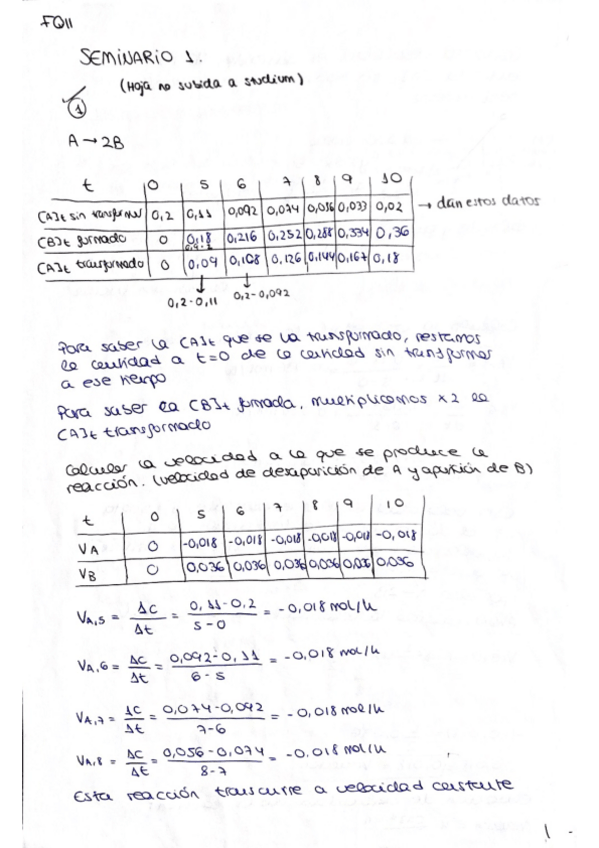 FQII
SEMINARIO 1.
(Hoja no subida a studium)
1
A → 2B
t 0 5 6 7 8 9 10
[A]t sin transformar 0,2 0,11 0,092 0,074 0,056 0,033 0,02 → dan estos datos
[B]t formado 0 0,18 0,216 0,252 0,288 0,334 0,36
[A]t transformado 0 0,09 0,108 0,126 0,144 0,167 0,18
0,2-0,11 0,2-0,092
Para saber la [A]t que se ha transformado, restamos
la cantidad a t=0 de la cantidad sin transformar
a ese tiempo
Para saber la [B]t formada, multiplicamos x2 la
[A]t transformado
Calcular la velocidad a la que se produce la
reacción. (velocidad de desaparición de A y aparición de B)
t 0 5 6 7 8 9 10
VA 0 -0,018 -0,018 -0,018 -0,018 -0,018 -0,018
VB 0 0,036 0,036 0,036 0,036 0,036 0,036
VA,5 = ΔC/Δt = 0,11-0,2/5-0 = -0,018 mol/h
VA,6 = ΔC/Δt = 0,092-0,11/6-5 = -0,018 mol/h
VA,7 = ΔC/Δt = 0,074-0,092/7-6 = -0,018 mol/h
VA,8 = ΔC/Δt = 0,056-0,074/8-7 = -0.018 mol/h
Esta reacción transcurre a velocidad constante
1